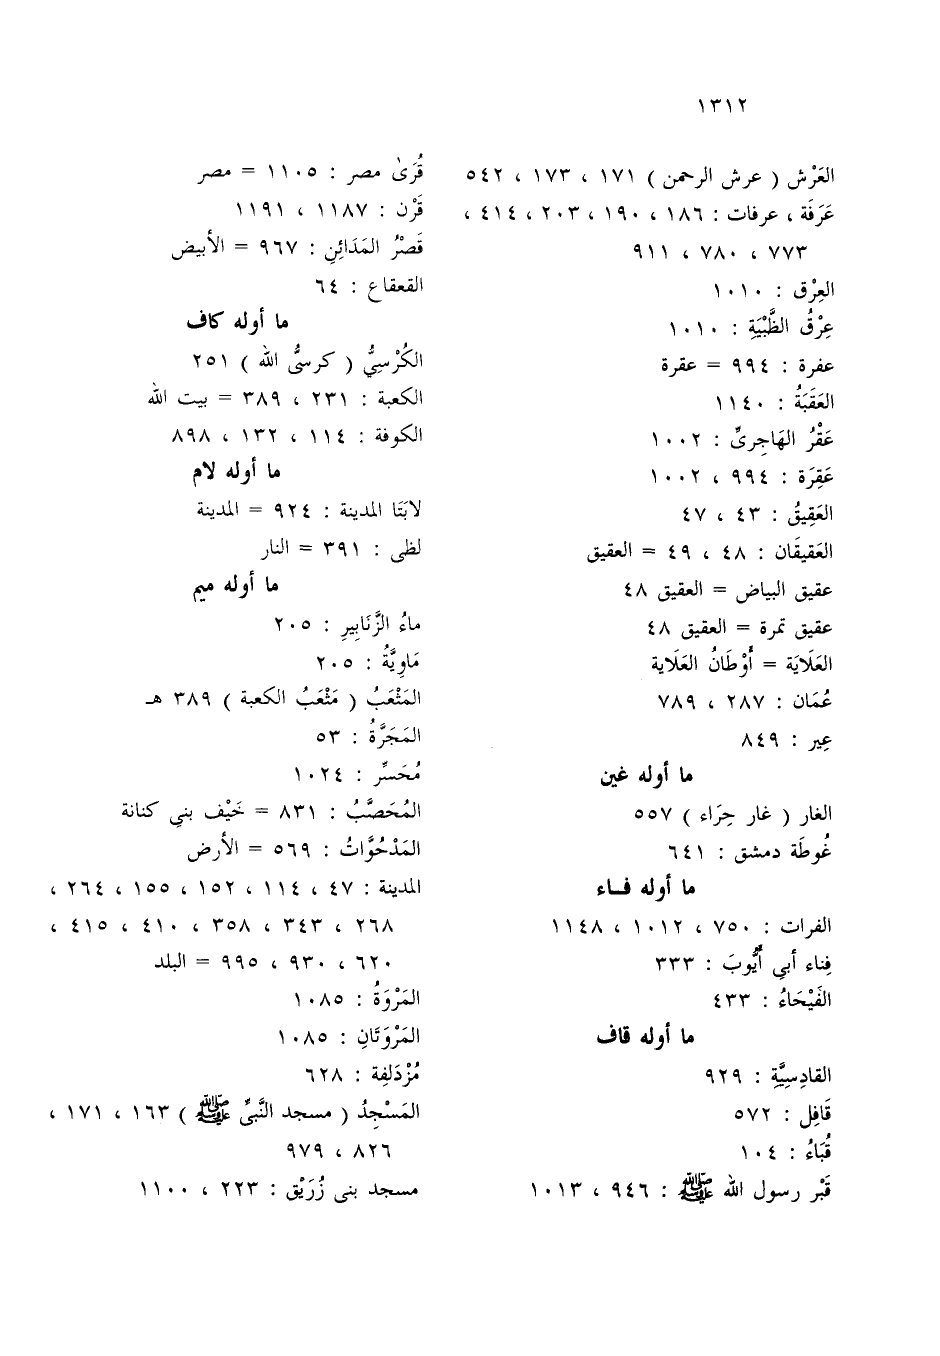 ١٣١٢
العَرْش ( عرش الرحمن ) ١٧١ ، ١٧٣ ، ٥٤٢
عَرَفَة ، عرفات : ١٨٦ ، ١٩٠ ، ٢٠٣ ، ٤١٤ ،
٧٧٣ ، ٧٨٠ ، ٩١١
العِرْق : ١٠١٠
عِرْقُ الظَّبْيَةِ : ١٠١٠
عفرة : ٩٩٤ = عقرة
العَقَبَةُ : ١١٤٠
عَقْرُ الهَاجِرىِّ : ١٠٠٢
عَقِرَة : ٩٩٤ ، ١٠٠٢
العَقِيقُ : ٤٣ ، ٤٧
العَقيقَان : ٤٨ ، ٤٩ = العقيق
عقيق البياض = العقيق ٤٨
عقيق تمرة = العقيق ٤٨
العَلَايَة = أَوْطَانُ العَلَاية
عُمَان : ٢٨٧ ، ٧٨٩
عِير : ٨٤٩
ما أوله غين
الغار ( غار حِرَاء ) ٥٥٧
غُوطَة دمشق : ٦٤١
ما أوله فـاء
الفرات : ٧٥٠ ، ١٠١٢ ، ١١٤٨
فِناء أبي أَيُّوبَ : ٣٣٣
الفَيْحَاءُ : ٤٣٣
ما أوله قاف
القادِسِيَّةِ : ٩٢٩
قَافِل : ٥٧٢
قُبَاءُ : ١٠٤
قَبْر رسول الله ﷺ : ٩٤٦ ، ١٠١٣
قُرَىٰ مصر : ١١٠٥ = مصر
قَرْن : ١١٨٧ ، ١١٩١
قَصْرُ المَدَائِنِ : ٩٦٧ = الأبيض
القعقاع : ٦٤
ما أوله كاف
الكُرْسِيُّ ( كرسىُّ الله ) ٢٥١
الكعبة : ٢٣١ ، ٣٨٩ = بيت الله
الكوفة : ١١٤ ، ١٣٢ ، ٨٩٨
ما أوله لام
لابَتَا المدينة : ٩٢٤ = المدينة
لظى : ٣٩١ = النار
ما أوله ميم
ماءُ الزَّنَابِيرِ : ٢٠٥
مَاوِيَّةُ : ٢٠٥
المَثْعَبُ ( مَثْعَبُ الكعبة ) ٣٨٩ هـ
المَجَرَّةُ : ٥٣
مُحَسِّر : ١٠٢٤
المُحَصَّبُ : ٨٣١ = خَيْف بني كنانة
المَدْحُوَّاتُ : ٥٦٩ = الأرض
المدينة : ٤٧ ، ١١٤ ، ١٥٢ ، ١٥٥ ، ٢٦٤ ،
٢٦٨ ، ٣٤٣ ، ٣٥٨ ، ٤١٠ ، ٤١٥ ،
٦٢٠ ، ٩٣٠ ، ٩٩٥ = البلد
المَرْوَةُ : ١٠٨٥
المَرْوَتَانِ : ١٠٨٥
مُزْدَلِفة : ٦٢٨
المَسْجِدُ ( مسجد النَّبيِّ ﷺ ) ١٦٣ ، ١٧١ ،
٨٢٦ ، ٩٧٩
مسجد بنى زُرَيْق : ٢٢٣ ، ١١٠٠